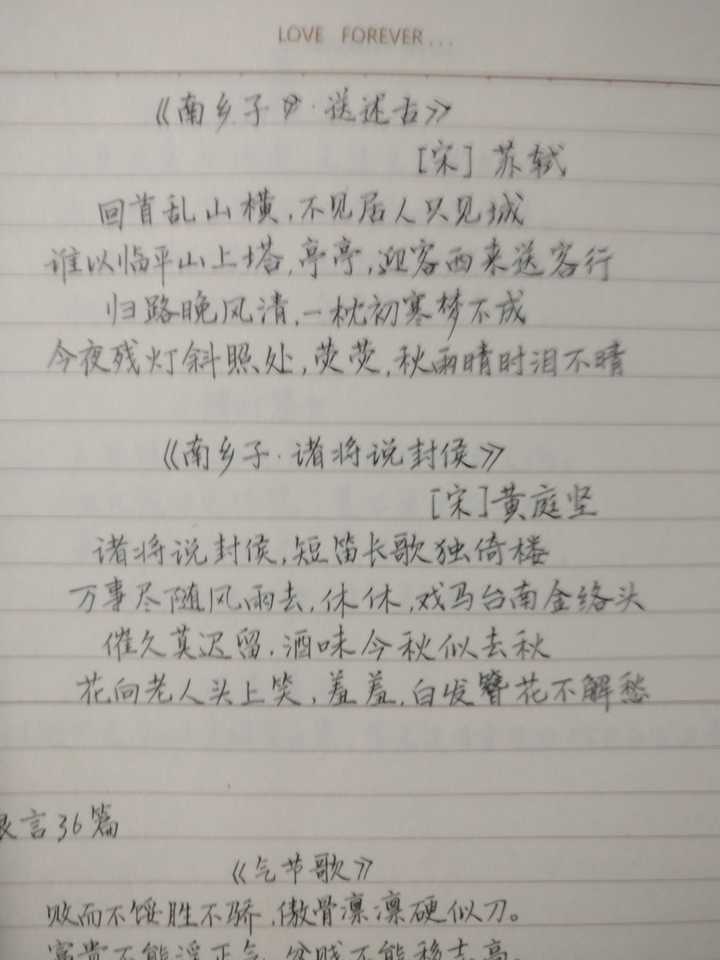 LOVE FOREVER...
《南乡子·送述古》
[宋] 苏轼
回首乱山横,不见居人只见城
谁以临平山上塔,亭亭,迎客西来送客行
归路晚风清,一枕初寒梦不成
今夜残灯斜照处,荧荧,秋雨晴时泪不晴
《南乡子·诸将说封侯》
[宋]黄庭坚
诸将说封侯,短笛长歌独倚楼
万事尽随风雨去,休休,戏马台南金络头
催久莫迟留.酒味今秋似去秋
花向老人头上笑,羞羞,白发簪花不解愁
言36篇
《气节歌》
败而不馁胜不骄,傲骨凛凛硬似刀。
富贵不能淫正气,贫贱不能移志高。